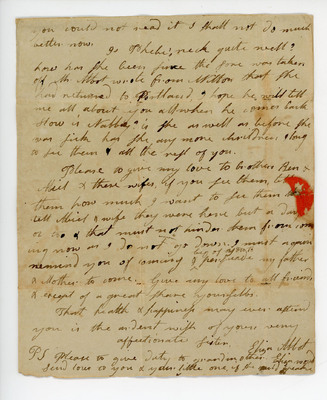 you could not read it I shall not do much
better now. Is Phebe, neck quite well?
how has she been since the sore was taken
of Mr Abbot wrote from Milton that she
has returned to Portland I hope he will tell
me all about you all when he comes back
How is Nabby, is she as well as before she
was sick has she any more children I long
to see them & all the rest of you.
Please to give my love to brothers Ben &
& these wifes, if you see them, tell
them how much I want to see them
tell & wife they were here but a day
or so & that must not hinder them from com
ing now as I do not go down. I must again
remind you of coming & persuade my father
& Mother to come. Give my love to all friends
& accept of a great share yourselves.
That health & happiness may ever attend
you is the ardent wish of yours very
affectionate Sister,
Eliza Abbot
PS Please to give duty to grandmother. Eliza
send love to you & your little one, is she and